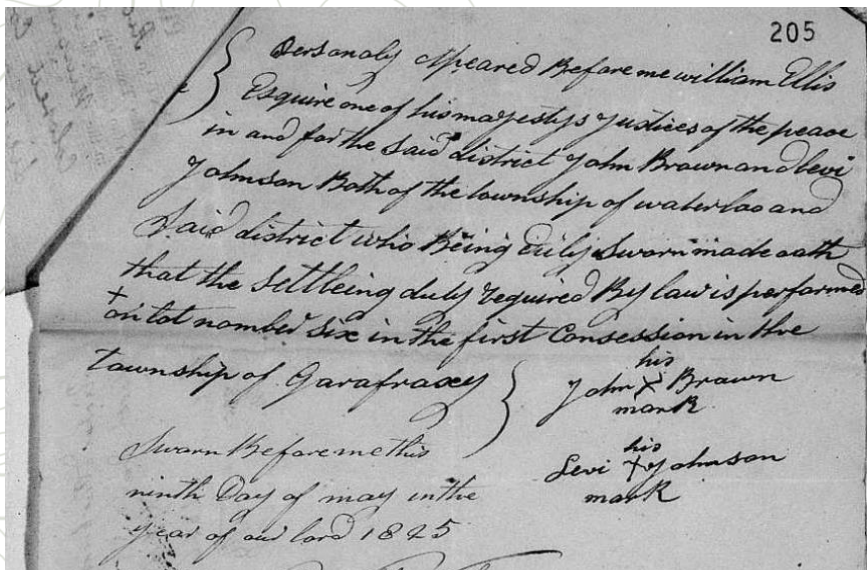 205
Personaly Apeared Before me william Ellis
Esquire one of his majestys Justices of the peace
in and for the Said district John Brown and Levi
Johnson Both of the township of waterloo and
Said district who Being duly Sworn made oath
that the Settleing duly required By law is performed
on lot nomber Six in the first Consession in the
township of Garafraxey
his
John X Brown
mark
his
Levi X Johnson
mark
Sworn Before me this
ninth Day of may in the
year of our lord 1825